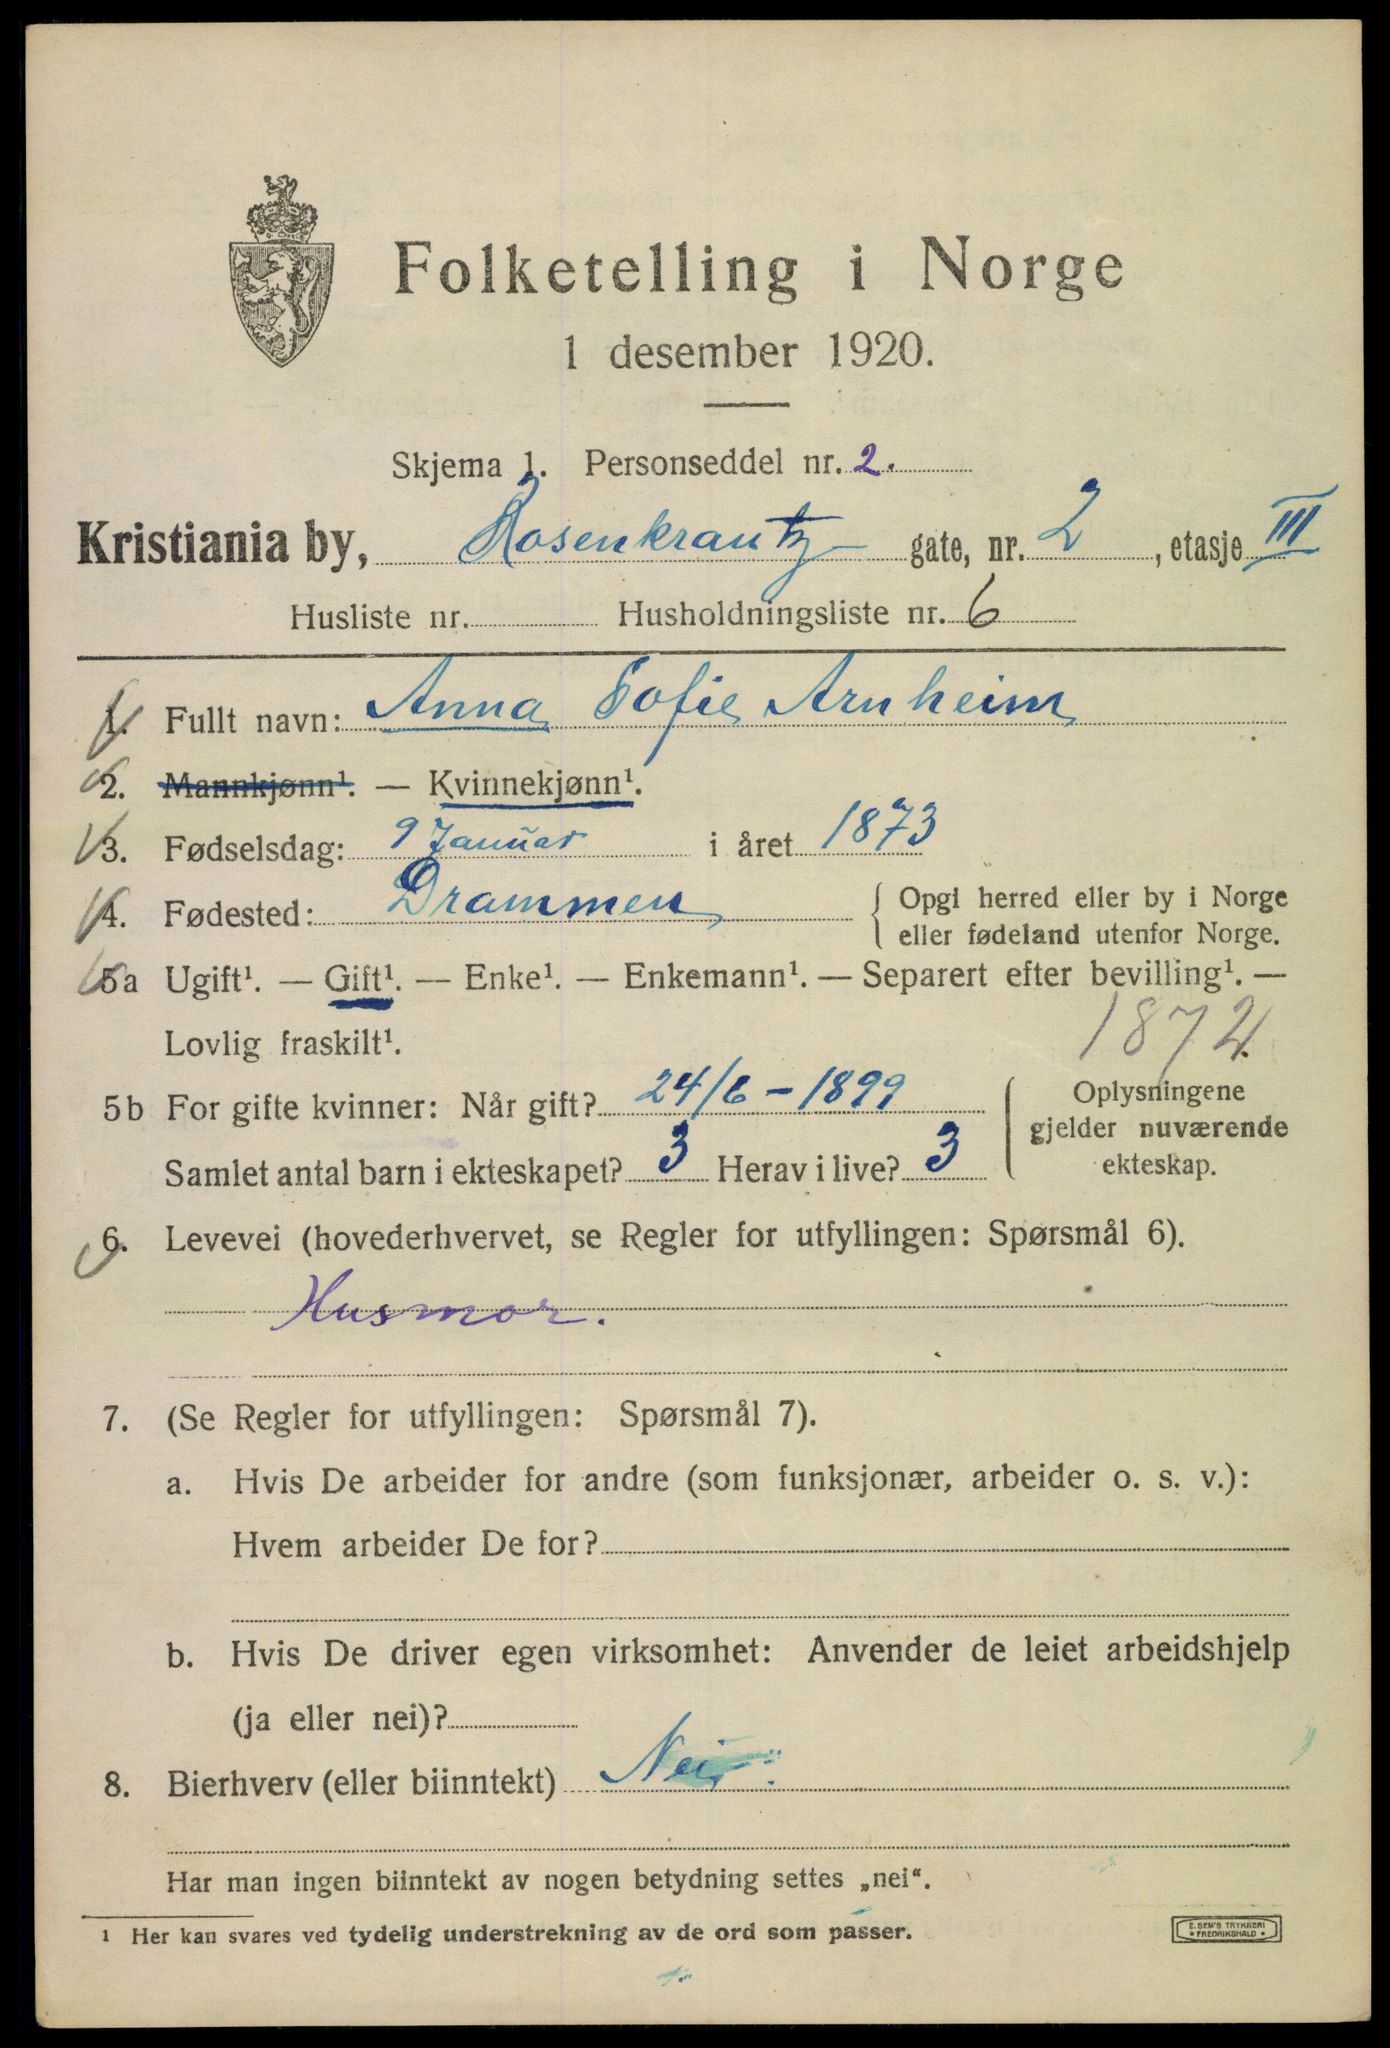 Folketelling i Norge
1 desember 1920.
Skjema 1. Personseddel nr. 2.
Kristiania by, Rosenkrantz gate, nr. 2, etasje III
Husliste nr. Husholdningsliste nr. 6
1. Fullt navn: Anna Sofie Arnheim
2. Mannkjønn¹. — Kvinnekjønn¹.
3. Fødselsdag: 9 Januar i året 1873
4. Fødested: Drammen { Opgi herred eller by i Norge
eller fødeland utenfor Norge.
5a Ugift¹. — Gift¹. — Enke¹. — Enkemann¹. — Separert efter bevilling¹. —
Lovlig fraskilt¹. 1872.
5b For gifte kvinner: Når gift? 24/6 - 1899
Samlet antal barn i ekteskapet? 3 Herav i live? 3
Oplysningene
gjelder nuværende
ekteskap.
6. Levevei (hovederhvervet, se Regler for utfyllingen: Spørsmål 6).
Husmor.
7. (Se Regler for utfyllingen: Spørsmål 7).
a. Hvis De arbeider for andre (som funksjonær, arbeider o. s. v.):
Hvem arbeider De for?
b. Hvis De driver egen virksomhet: Anvender de leiet arbeidshjelp
(ja eller nei)?
8. Bierhverv (eller biinntekt) Nei
Har man ingen biinntekt av nogen betydning settes „nei".
¹ Her kan svares ved tydelig understrekning av de ord som passer.
E. SEM'S TRYKKERI
• FREDRIKSHALD •